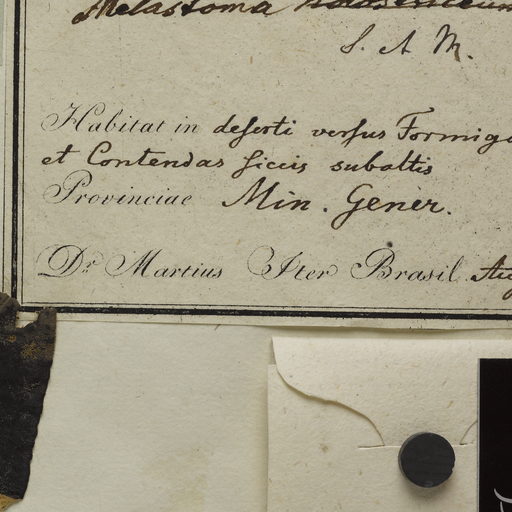 Melastoma holosericeum
S. A. M.
Habitat in deserti versus Formigo
et Contendas siccis subaltis
Provinciae Min. Gener.
Dr. Martius Iter Brasil. Aug